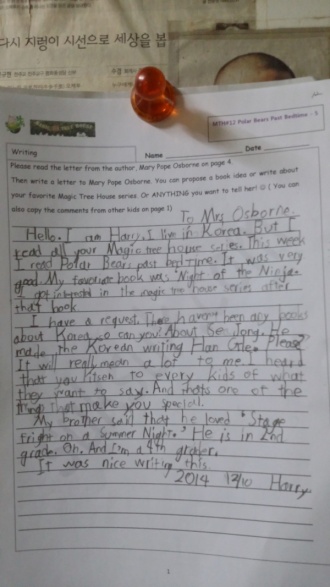 다시 지렁이 시선으로 세상을 봅
MTH#12 Polar Bears Past Bedtime - 5
Writing
Name
Date
Please read the letter from the author, Mary Pope Osborne on page 4.
Then write a letter to Mary Pope Osborne. You can propose a book idea or write about
your favorite Magic Tree House series. Or ANYTHING you want to tell her! ☺ ( You can
also copy the comments from other kids on page 1)
To Mrs Osborne.
Hello. I am Harry. I live in Korea. But I
read all your Magic tree house series. This week
I read Polar Bears past bed time. It was very
good My favorite book was "Night of the Ninja.
I got interested in the magic tree house series after
that book
I have a request. There haven't been any books
about Korea so can you? About Se Jong. He
made the Korean writing Han Gle. Please?
It will really mean a lot to me. I heard
that you litsen to every kids of what
they want to say. And thats one of the
things that make you special.
My brother said that he loved "Stage
fright on a Summer Night." He is in 2nd
grade. Oh. And I'm a 4th grader.
It was nice writing this.
2014 12/10 Harry
1